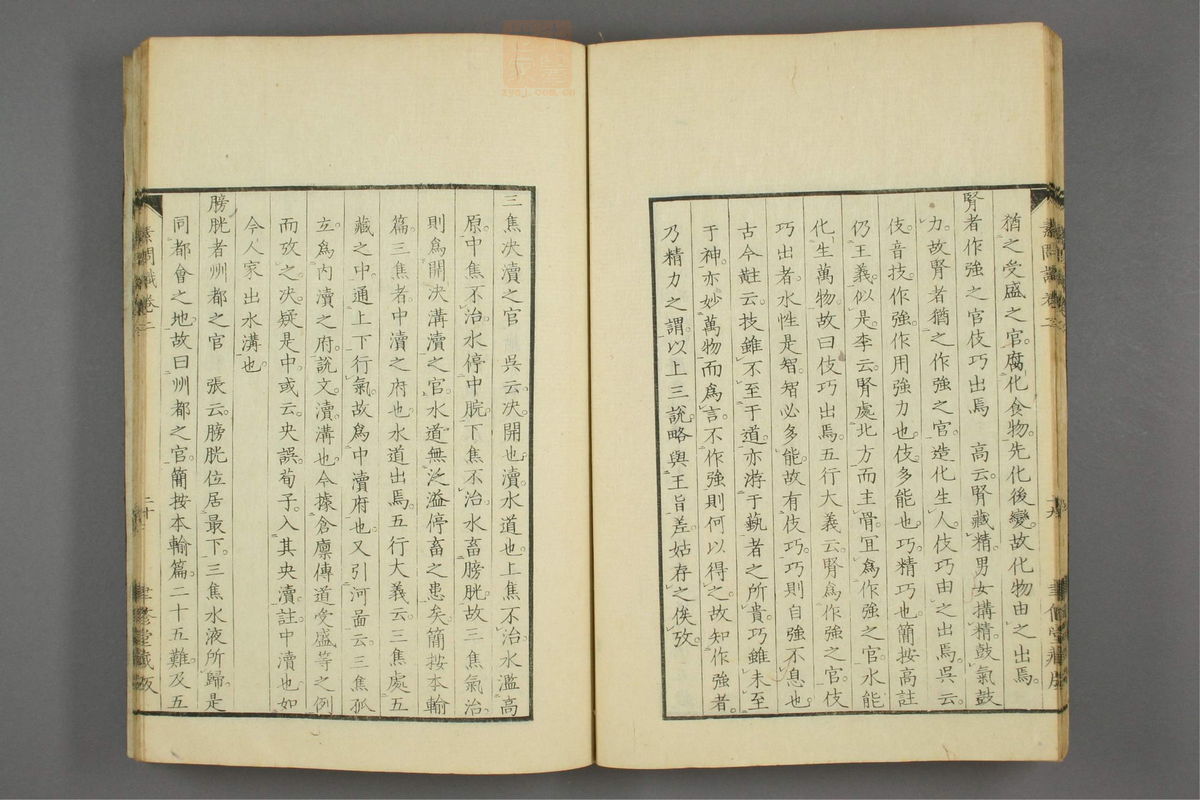 猶之受盛之官。腐化食物。先化後變。故化物由之出焉。
腎者作強之官伎巧出焉　高云。腎藏精。男女搆精。鼓氣鼓
力。故腎者猶之作強之官。造化生人。伎巧由之出焉。吳云。
伎。音技。作強。作用強力也。伎。多能也。巧。精巧也。簡按高註
仍王義。似是。李云。腎處北方而主骨。宜爲作強之官。水能
化生萬物。故曰伎巧出焉。五行大義云。腎爲作強之官。伎
巧出者。水性是智。智必多能。故有伎巧。巧則自強不息也。
古今註云。技雖不至于道。亦游于藝者之所貴。巧雖未至
于神。亦妙萬物而爲言。不作強則何以得之。故知作強者。
乃精力之謂。以上三說。略與王旨差。姑存之俟攷。
三焦決瀆之官　吳云。決。開也。瀆。水道也。上焦不治。水濫高
原。中焦不治。水停中脘。下焦不治。水畜膀胱。故三焦氣治。
則爲開決溝瀆之官。水道無泛溢停畜之患矣。簡按本輸
篇。三焦者。中瀆之府也。水道出焉。五行大義云。三焦處五
藏之中。通上下行氣。故爲中瀆府也。又引河圖云。三焦孤
立。爲內瀆之府。說文。瀆。溝也。今據倉廩傳道受盛等之例
而攷之。決。疑是中。或云。央誤。荀子。入其央瀆。註。中瀆也。如
今人家出水溝也。
膀胱者州都之官　張云。膀胱位居最下。三焦水液所歸。是
同都會之地。故曰州都之官。簡按本輸篇。二十五難。及五
素問識卷二
二十
聿修堂藏板